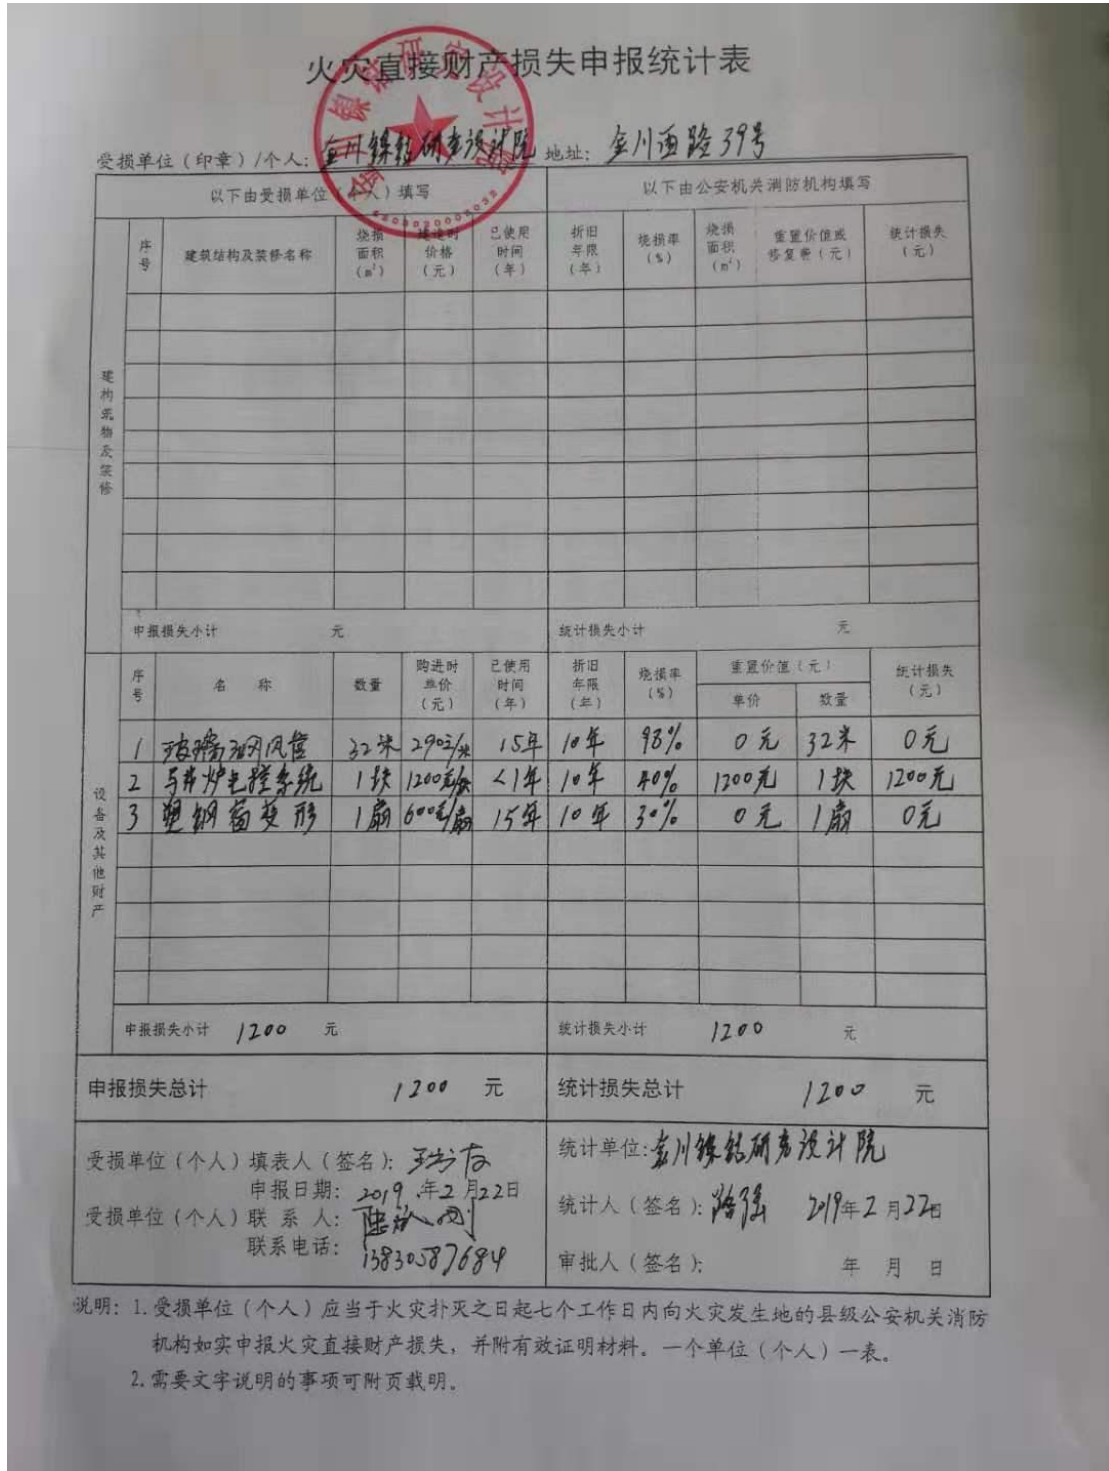 火灾直接财产损失申报统计表
受损单位（印章）/个人：金川镍钴研究设计院 地址：金川西路39号
以下由受损单位（个人）填写 以下由公安机关消防机构填写
建构筑物及装修
序号 建筑结构及装修名称 烧损面积（m²） 建造时价格（元） 已使用时间（年） 折旧年限（年） 烧损率（%） 烧损面积（m²） 重置价值或修复费（元） 统计损失（元）
申报损失小计 元 统计损失小计 元
设备及其他财产
序号 名称 数量 购进时单价（元） 已使用时间（年） 折旧年限（年） 烧损率（%） 重置价值（元） 统计损失（元）
单价 数量
1 玻璃钢风管 32米 290元/米 15年 10年 98% 0元 32米 0元
2 马弗炉电控系统 1块 1200元/块 <1年 10年 40% 1200元 1块 1200元
3 塑钢窗变形 1扇 600元/扇 15年 10年 30% 0元 1扇 0元
申报损失小计 1200 元 统计损失小计 1200 元
申报损失总计 1200 元 统计损失总计 1200 元
受损单位（个人）填表人（签名）：
申报日期：2019年2月22日
受损单位（个人）联系人：
联系电话：13830587684
统计单位：金川镍钴研究设计院
统计人（签名）：路强 2019年2月22日
审批人（签名）： 年 月 日
说明：1.受损单位（个人）应当于火灾扑灭之日起七个工作日内向火灾发生地的县级公安机关消防
机构如实申报火灾直接财产损失，并附有效证明材料。一个单位（个人）一表。
2.需要文字说明的事项可附页载明。